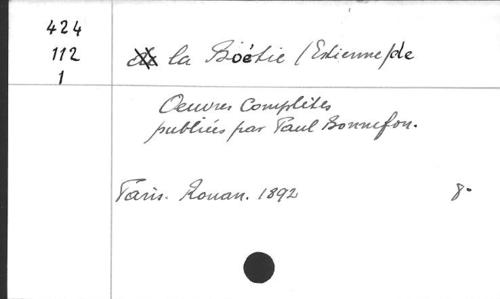 424
112
1
la Boétie (Estienne) de
Oeuvres Complètes
publiées par Paul Bonnefon.
Paris. Rouan. 1892 8°